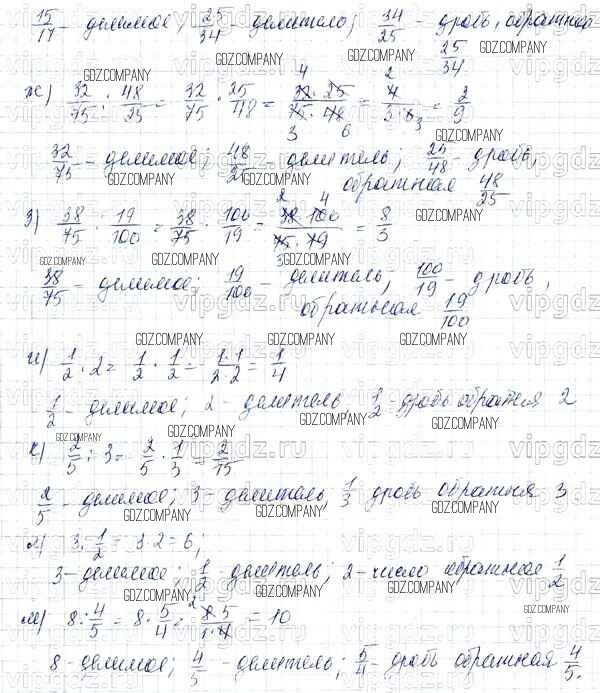 15/17 - делимое; 25/34 - делитель; 34/25 - дробь, обратная 25/34
ж) 32/75 : 48/25 = 32/75 · 25/48 = 32 · 25/75 · 48 = 4/3·6 = 2/9
32/75 - делимое; 48/25 - делитель; 25/48 - дробь,
обратная 48/25
з) 38/75 : 19/100 = 38/75 · 100/19 = 38 · 100/75 · 19 = 8/3
38/75 - делимое; 19/100 - делитель; 100/19 - дробь,
обратная 19/100
и) 1/2 : 2 = 1/2 · 1/2 = 1·1/2·2 = 1/4
1/2 - делимое; 2 - делитель, 1/2 - дробь обратная 2
к) 2/5 : 3 = 2/5 · 1/3 = 2/15
2/5 - делимое; 3 - делитель, 1/3 дробь обратная 3
л) 3 : 1/2 = 3 · 2 = 6;
3 - делимое; 1/2 - делитель; 2 - число обратное 1/2
м) 8 : 4/5 = 8 · 5/4 = 8·5/1·4 = 10
8 - делимое; 4/5 - делитель; 5/4 - дробь обратная 4/5.
GDZ.COMPANY
vipgdz.ru